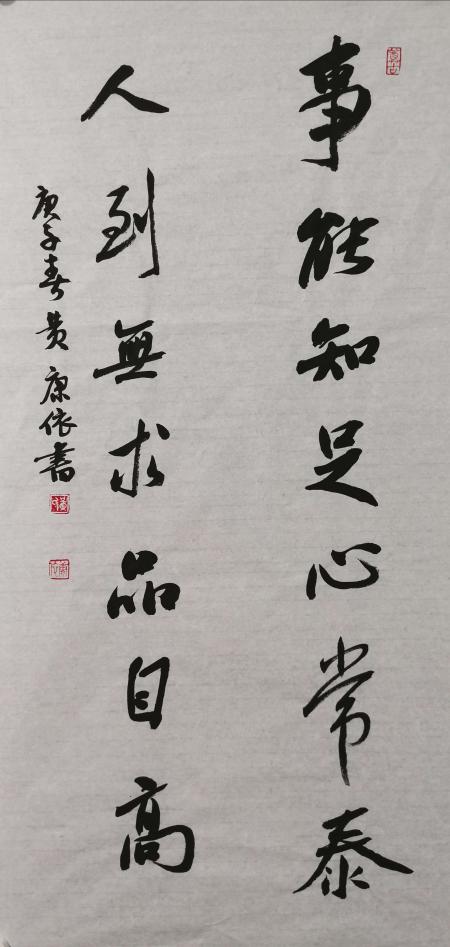 事能知足心常泰
人到無求品自高
庚子春黄康依書